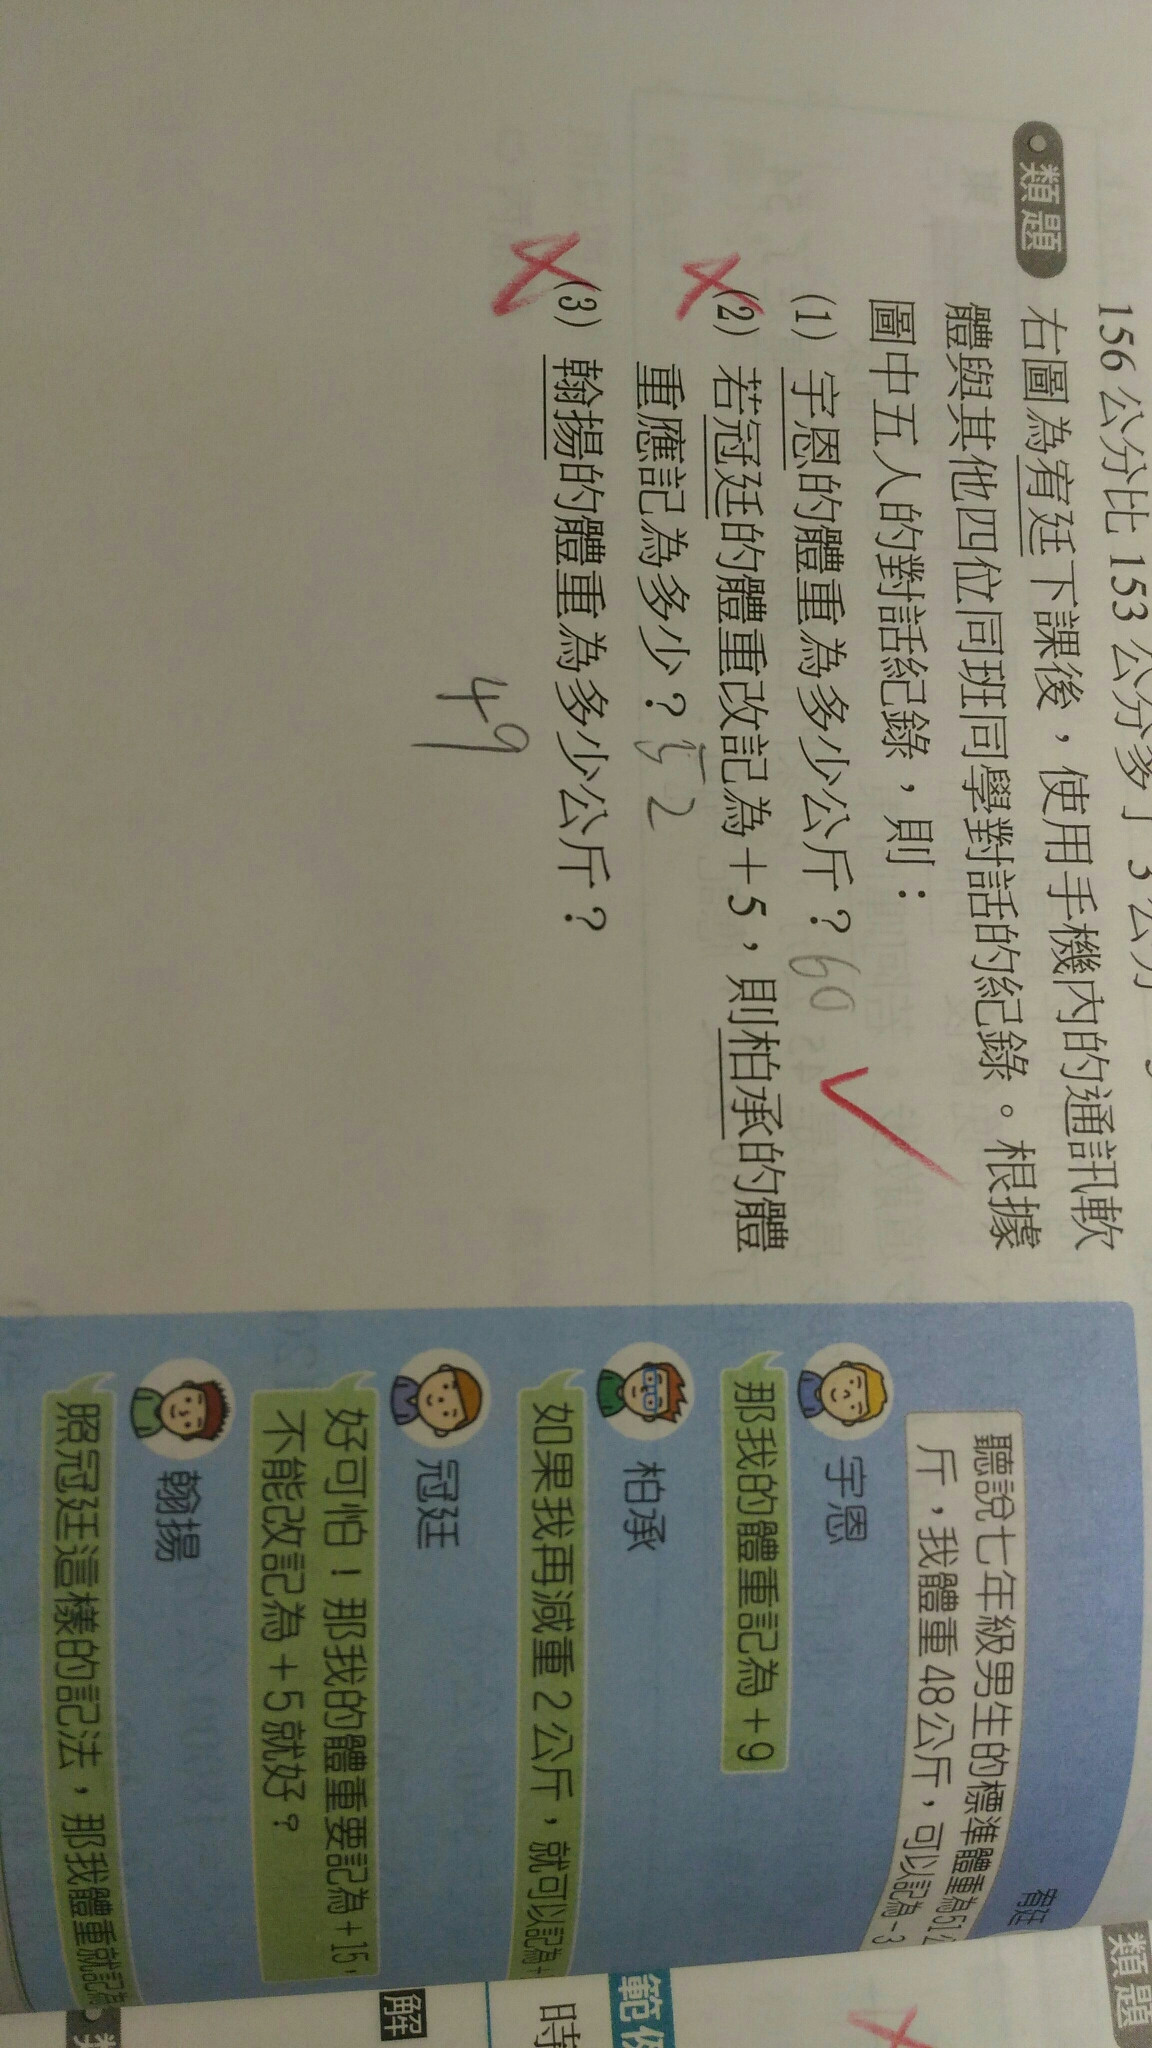 156 公分比 153 公分多了 3 公分
類題
右圖為宥廷下課後，使用手機內的通訊軟
體與其他四位同班同學對話的紀錄。根據
圖中五人的對話紀錄，則：
(1) 宇恩的體重為多少公斤？60
(2) 若冠廷的體重改記為＋5，則柏承的體
重應記為多少？52
(3) 翰揚的體重為多少公斤？
49
宥廷
聽說七年級男生的標準體重為51公
斤，我體重48公斤，可以記為－3
宇恩
那我的體重記為＋9
柏承
如果我再減重2公斤，就可以記為＋
冠廷
好可怕！那我的體重要記為＋15，
不能改記為＋5就好？
翰揚
照冠廷這樣的記法，那我體重就記為
類題
範例
時
解